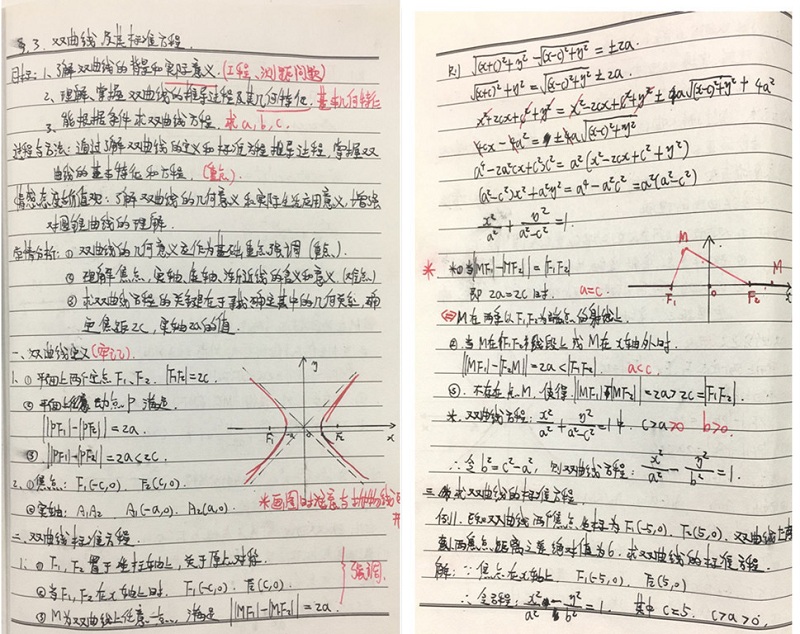 §.3. 双曲线及其标准方程.
目标: 1、了解双曲线的背景和实际意义. (工程、测距问题)
2、理解、掌握双曲线的推导过程及其几何特征. 基本几何特征
3、能根据条件求双曲线方程. 求a,b,c.
过程与方法: 通过了解双曲线的定义和标准方程推导过程, 掌握双
曲线的基本特征和方程. (重点)
情感态度与价值观: 了解双曲线的几何意义和实际生活应用意义, 增强
对圆锥曲线的理解.
学情分析: ① 双曲线的几何意义应作为基础重点强调 (重点).
② 理解焦点、实轴、虚轴、渐近线的含义和意义. (难点)
③ 求双曲线方程的关键在于确定其中的几何关系, 确
定焦距2c, 实轴2a的值.
一、双曲线定义 (牢记)
1. ① 平面上两个定点 F₁、F₂. |F₁F₂|=2c.
② 平面上任意动点P 满足
||PF₁|-|PF₂||=2a.
③ ||PF₁|-|PF₂||=2a<2c.
y
F₁ -a 0 F₂ x
2. ①焦点: F₁(-c,0) F₂(c,0)
※画图时注意与抛物线区
②实轴: A₁A₂ A₁(-a,0) A₂(a,0)
二、双曲线标准方程.
1. ① F₁、F₂ 置于坐标轴上, 关于原点对称
② 当F₁、F₂在x轴上时. F₁(-c,0) F₂(c,0)
强调.
③ M为双曲线上任意一点, 满足 ||MF₁|-|MF₂||=2a.
√(x+c)²+y² - √(x-c)²+y² = ±2a.
√(x+c)²+y² = √(x-c)²+y² ±2a.
x²+2cx+c²+y² = x²-2cx+c²+y² ± 4a√(x-c)²+y² + 4a²
4cx-4a² = ±4a√(x-c)²+y²
a⁴-2a²cx+c²x² = a²(x²-2cx+c²+y²)
(a²-c²)x²+a²y² = a⁴-a²c² = a²(a²-c²)
x²/a² + y²/(a²-c²) = 1.
※ ① 当 ||MF₁|-|MF₂||=|F₁F₂|
即 2a=2c 时. a=c.
M F₁ 0 F₂ M x
⇔ M在两条以F₁、F₂为端点的射线上.
② 当M在F₁F₂线段上或M在x轴外时.
||MF₁|-|F₂M||=2a<|F₁F₂|. a<c.
③ 不存在点M. 使得 ||MF₁|-|MF₂||=2a>2c=|F₁F₂|.
※. 双曲线方程: x²/a² + y²/(a²-c²) = 1 中. c>a>0 b>0.
∴ 令b²=c²-a², 则双曲线方程: x²/a² - y²/b² = 1.
三、求双曲线的标准方程.
例1. 已知双曲线两个焦点坐标为F₁(-5,0), F₂(5,0), 双曲线上
到两焦点距离之差绝对值为6. 求双曲线的标准方程.
解: ∵ 焦点在x轴上 F₁(-5,0) F₂(5,0)
∴ 令方程: x²/a² - y²/b² = 1. 其中 c=5. c>a>0.